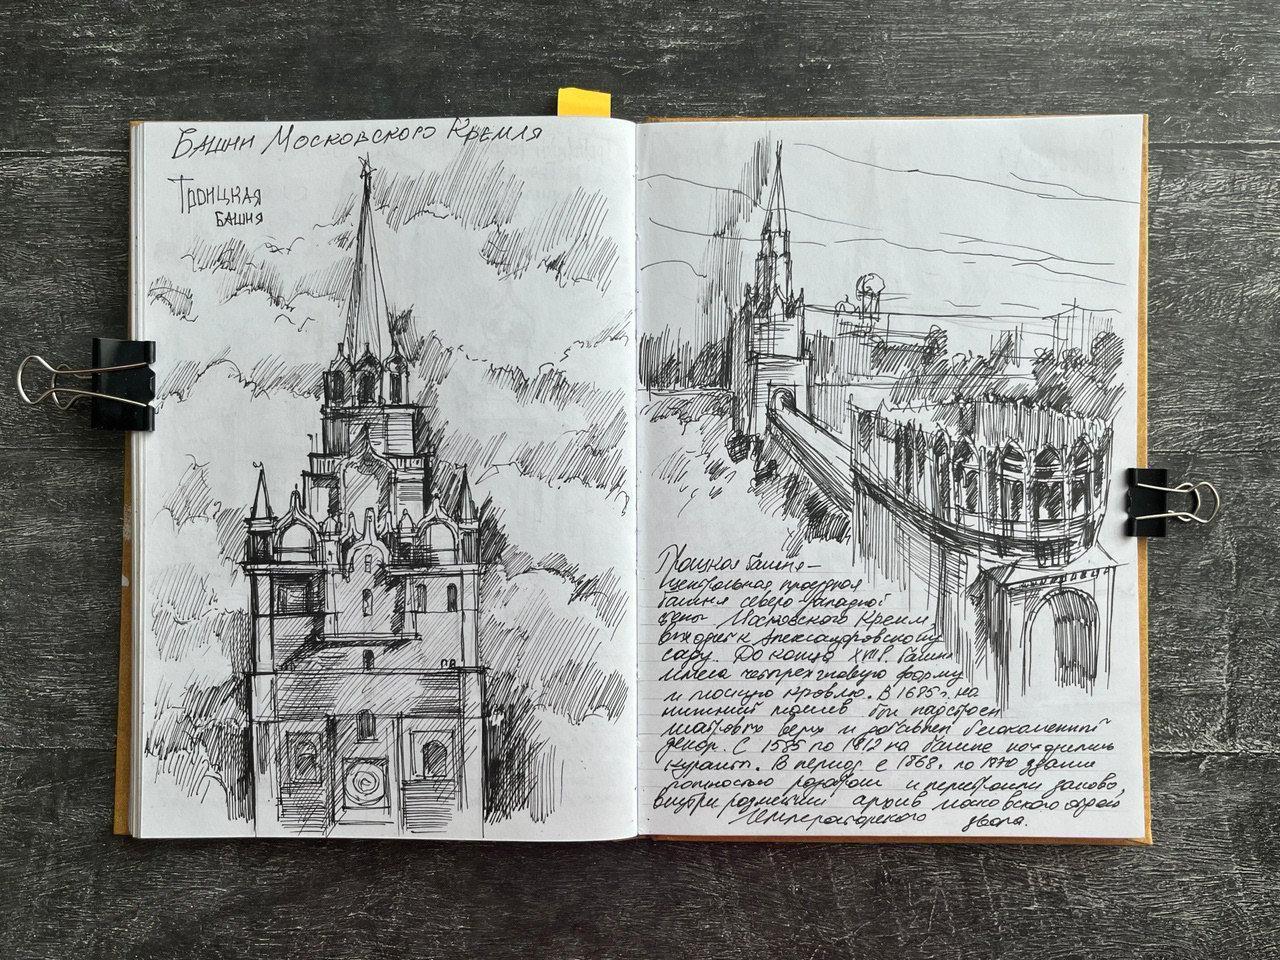 Башни Московского Кремля
Троицкая
башня
Троицкая башня –
центральная проездная
башня северо-западной
стены Московского Кремля,
выходит к Александровскому
саду. До конца XVII в. башня
имела четырехглавую форму
и плоскую кровлю. В 1685 г. на
нижний ярус был надстроен
шатровый верх и добавлен белокаменный
декор. С 1585 по 1812 на башне находились
куранты. В период с 1868 г. по 1870 здание
полностью разобрали и перестроили заново,
внутри разместили архив московского отдел
Императорского двора.